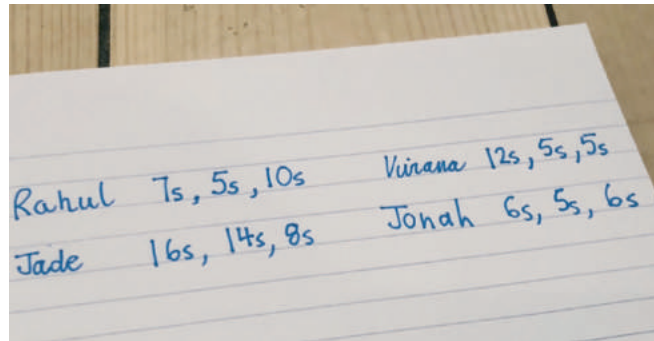 Rahul 7s, 5s, 10s
Jade 16s, 14s, 8s
Vuirana 12s, 5s, 5s
Jonah 6s, 5s, 6s